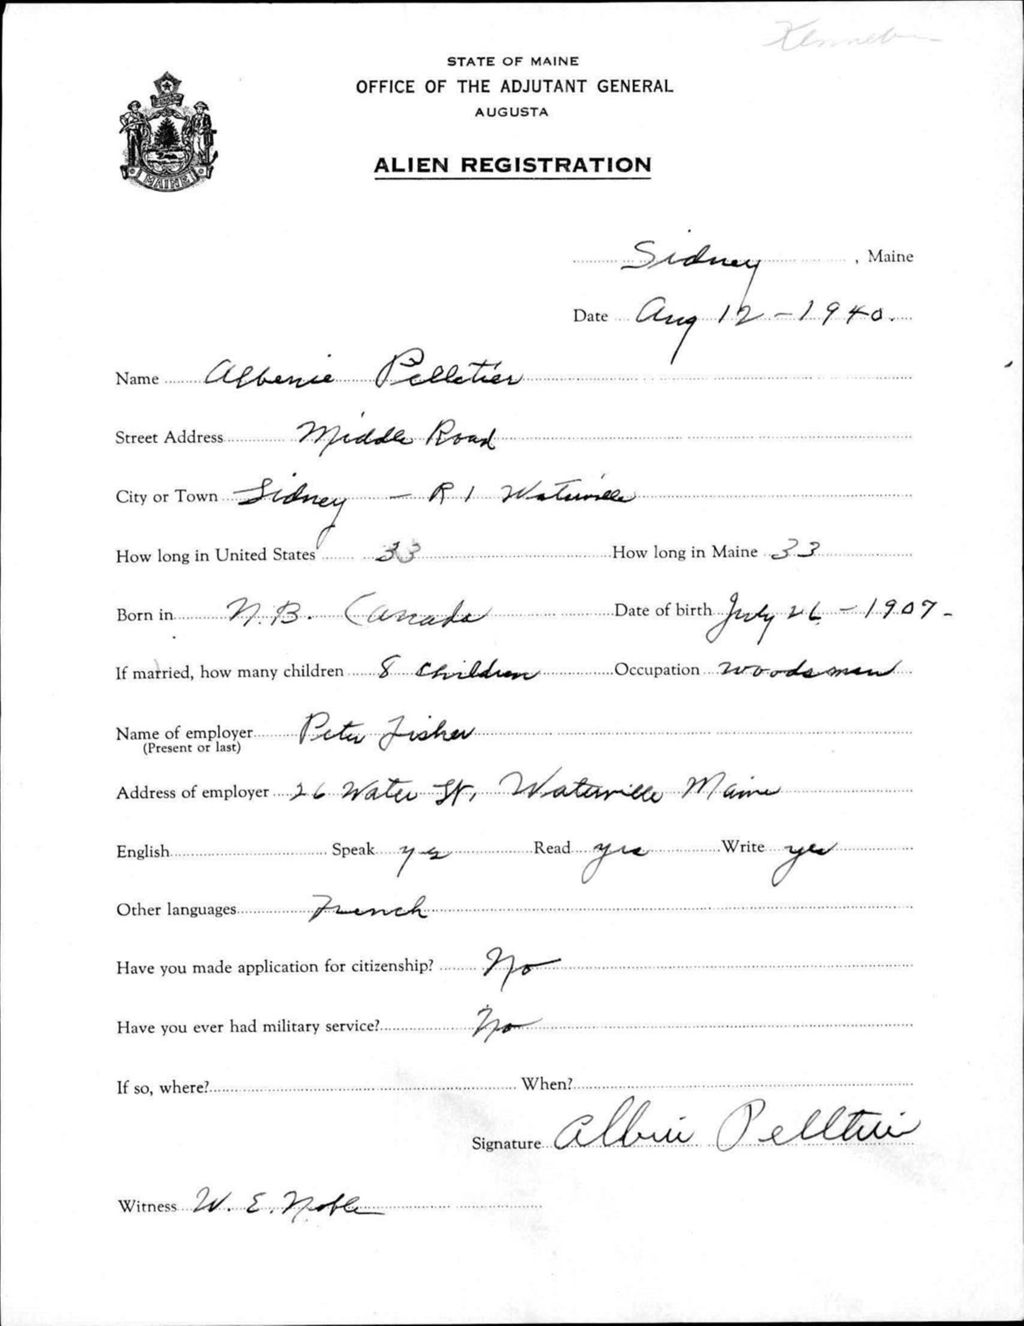 Kennebec
STATE OF MAINE
OFFICE OF THE ADJUTANT GENERAL
AUGUSTA
ALIEN REGISTRATION
MAINE
Sidney, Maine
Date Aug 12 - 1940.
Name Albenie Pelletier
Street Address Middle Road
City or Town Sidney - R 1 Waterville
How long in United States 33 How long in Maine 33
Born in N.B. Canada Date of birth July 26 - 1907 -
If married, how many children 8 Children Occupation Woodsman
Name of employer Peter Fisher
(Present or last)
Address of employer 26 Water St, Waterville Maine
English Speak yes Read yes Write yes
Other languages French
Have you made application for citizenship? No
Have you ever had military service? No
If so, where? When?
Signature Albini Pelltiei
Witness W. E. Noble